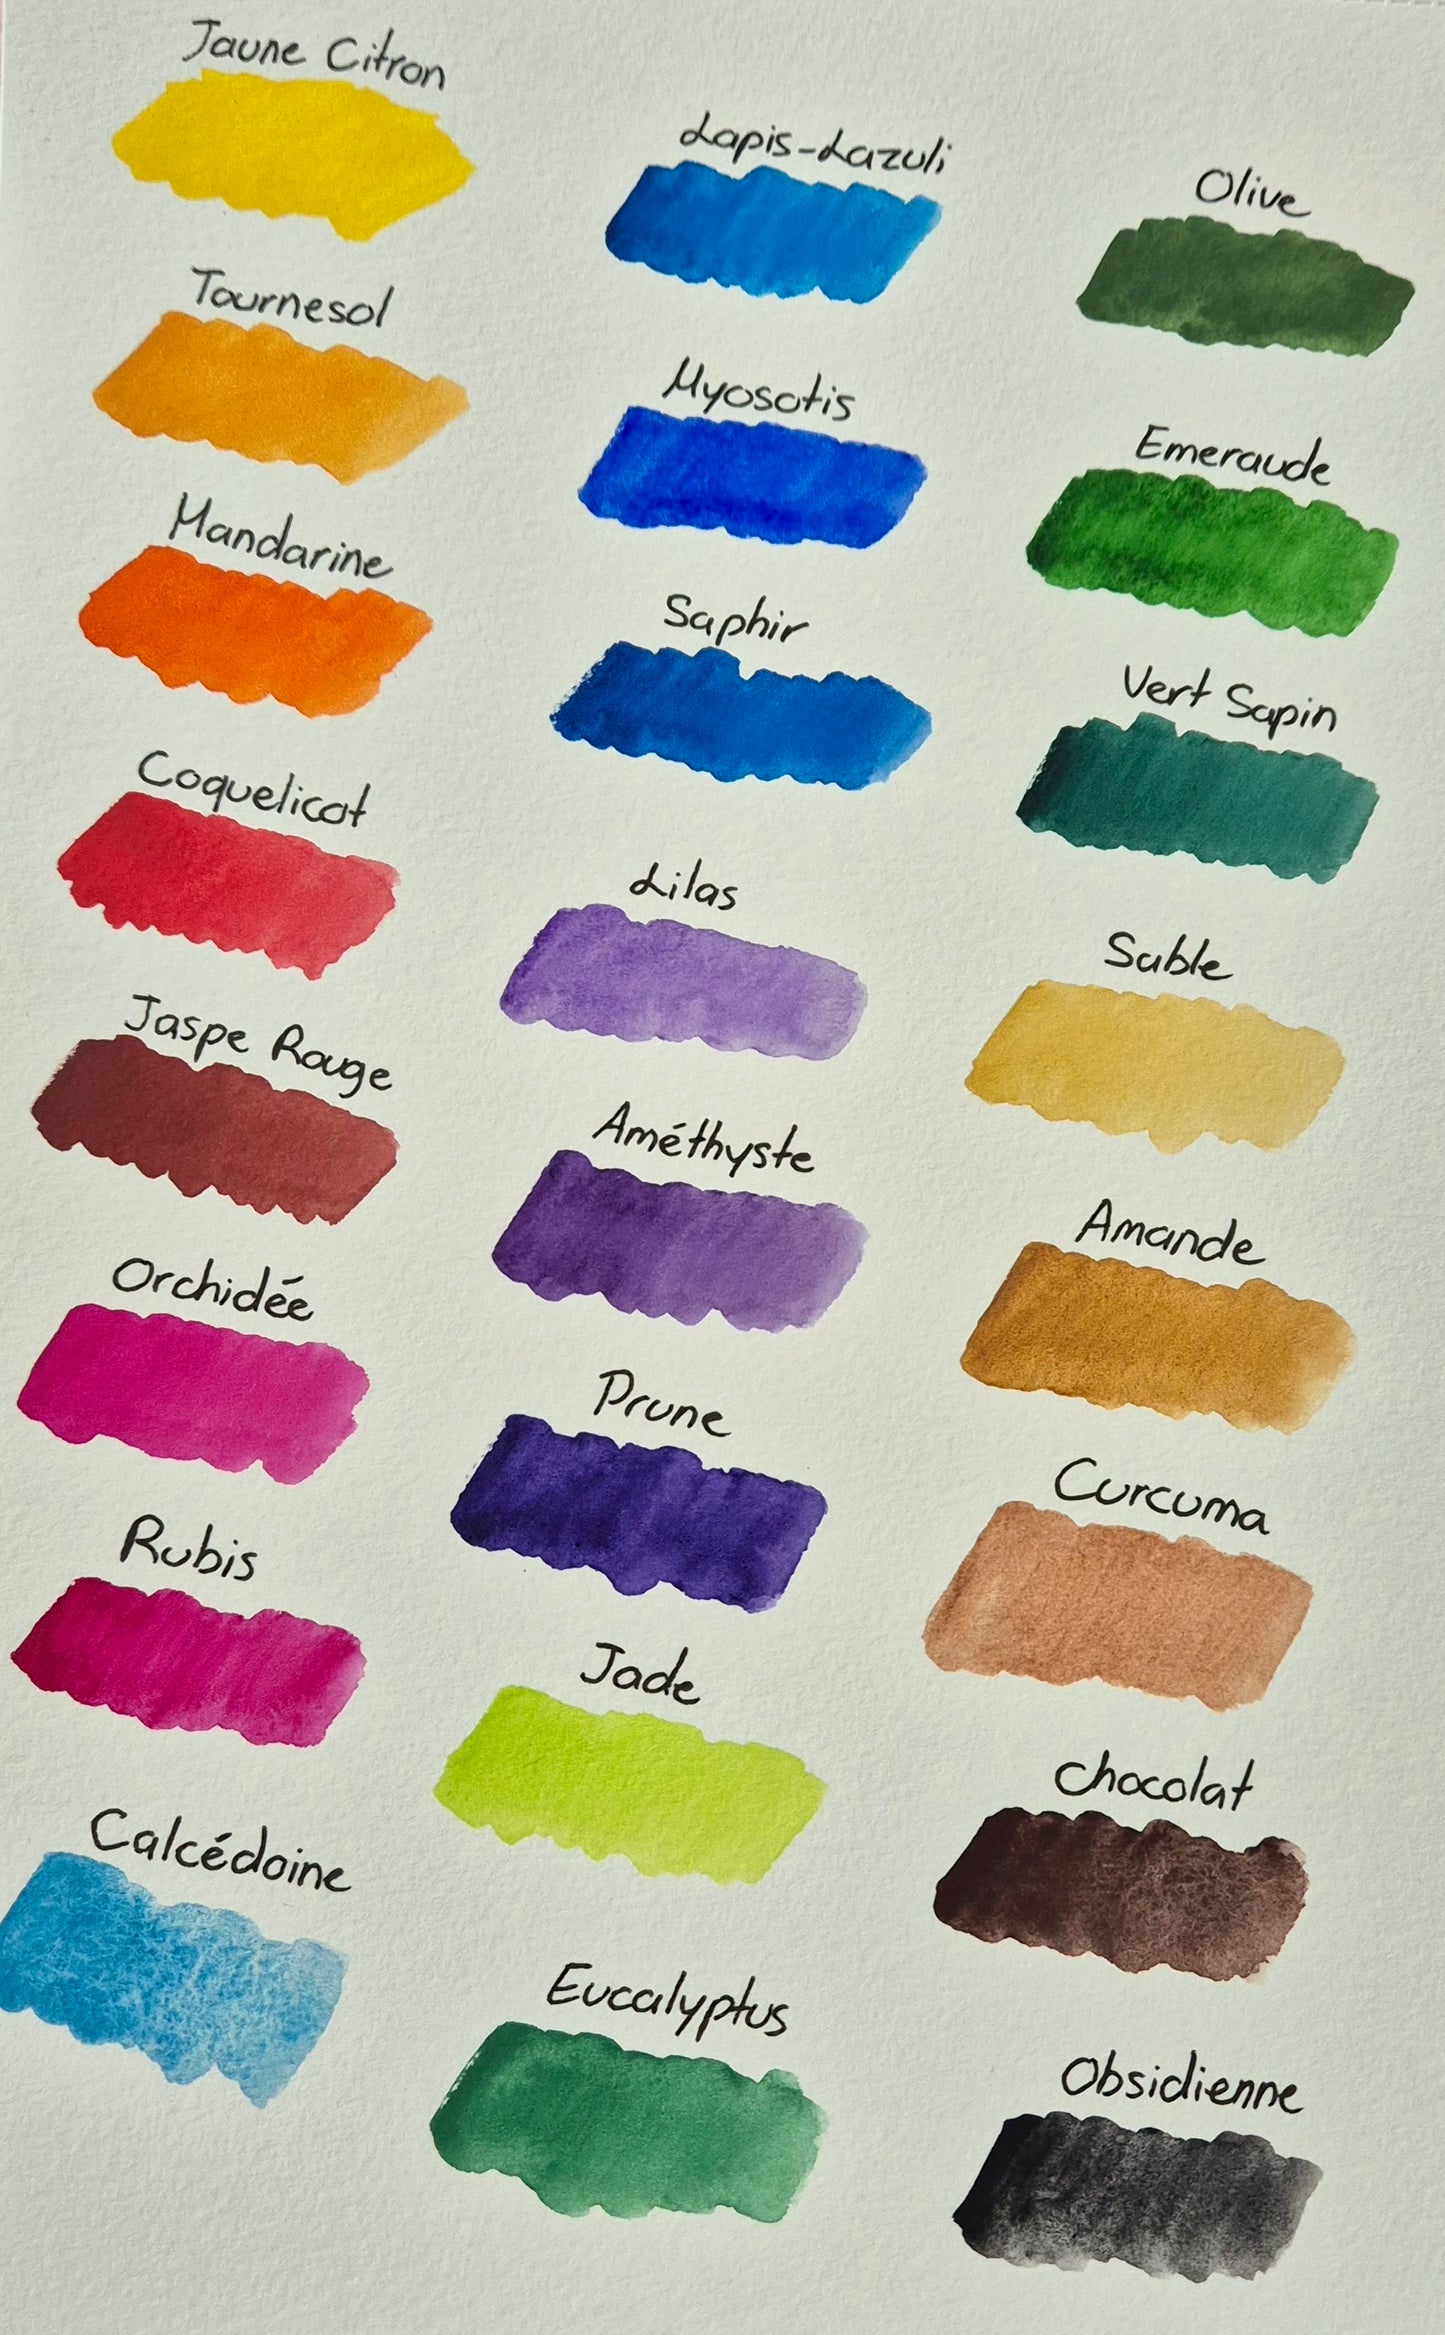 Jaune Citron
Tournesol
Mandarine
Coquelicot
Jaspe Rouge
Orchidée
Rubis
Calcédoine
Lapis-Lazuli
Myosotis
Saphir
Lilas
Améthyste
Prune
Jade
Eucalyptus
Olive
Emeraude
Vert Sapin
Sable
Amande
Curcuma
chocolat
Obsidienne